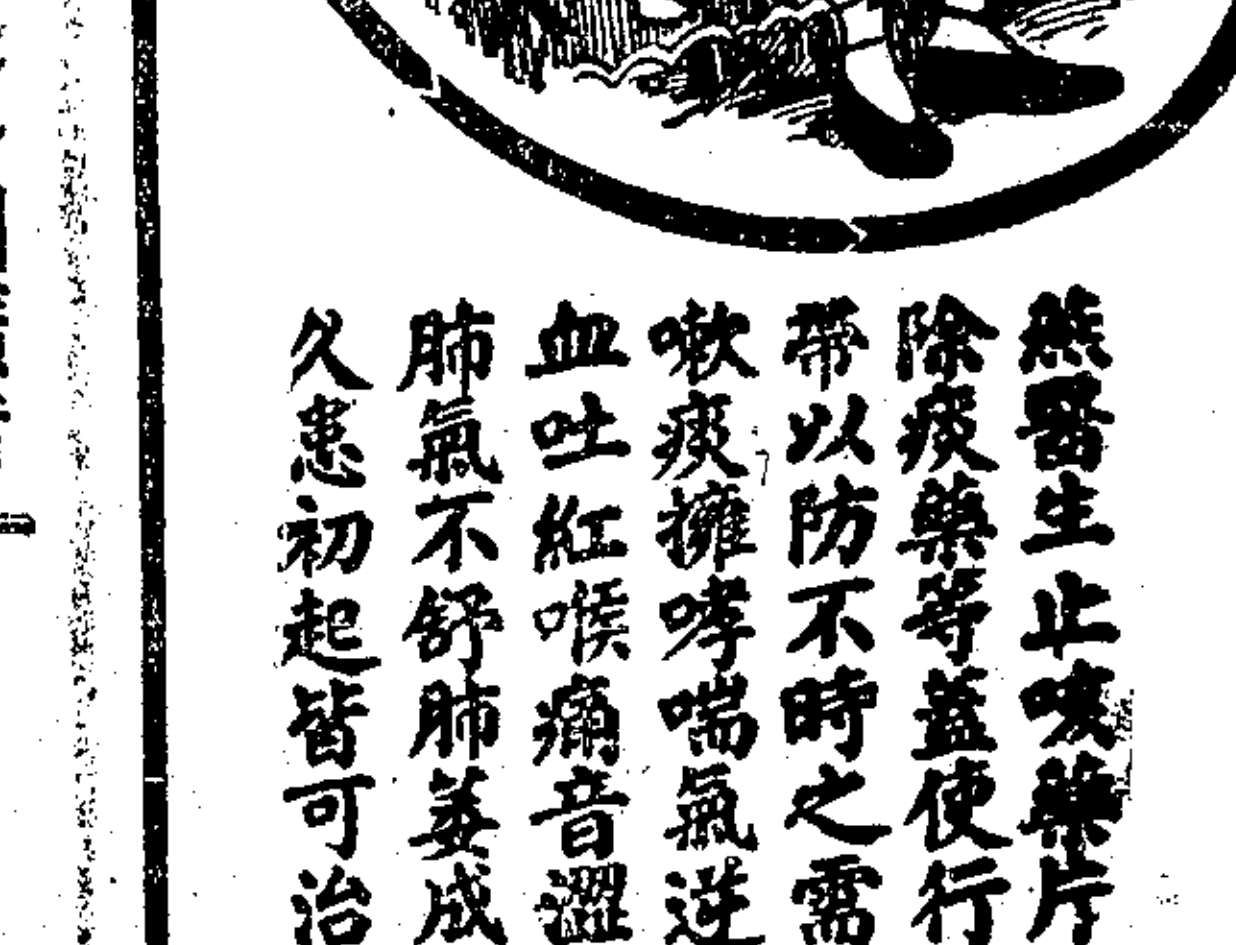 燕醫生止咳藥片
除痰藥等蓋使行
帶以防不時之需
嗽痰擁哮喘氣逆
血吐紅喉痛音澀
肺氣不舒肺萎成
久患初起皆可治